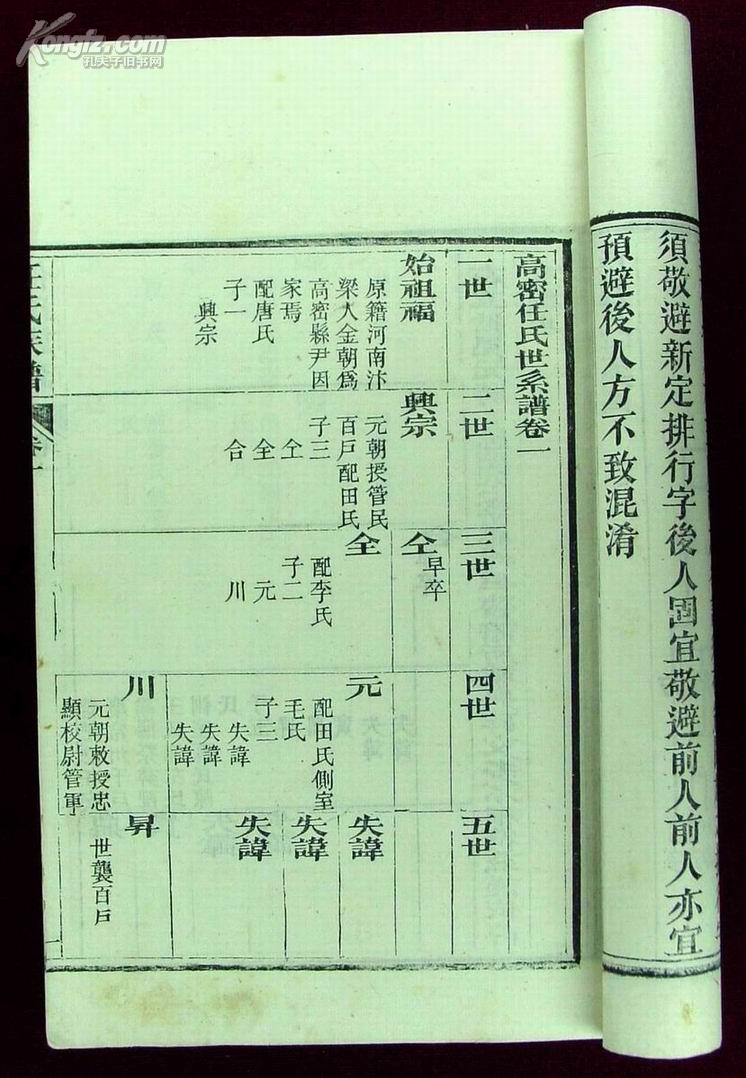 Kongfz.com
孔夫子旧书网
須敬避新定排行字後人固宜敬避前人前人亦宜
預避後人方不致混淆
高密任氏世系譜卷一
一世
始祖福
原籍河南汴
梁人金朝為
高密縣尹因
家焉
配唐氏
子一
興宗
二世
興宗
元朝授管民
百戶配田氏
子三
仝
全
合
三世
仝
早卒
全
配李氏
子二
元
川
四世
元
配田氏側室
毛氏
子三
失諱
失諱
失諱
川
元朝敕授忠
顯校尉管軍
五世
失諱
失諱
失諱
昇
世襲百戶
任氏族譜
卷一